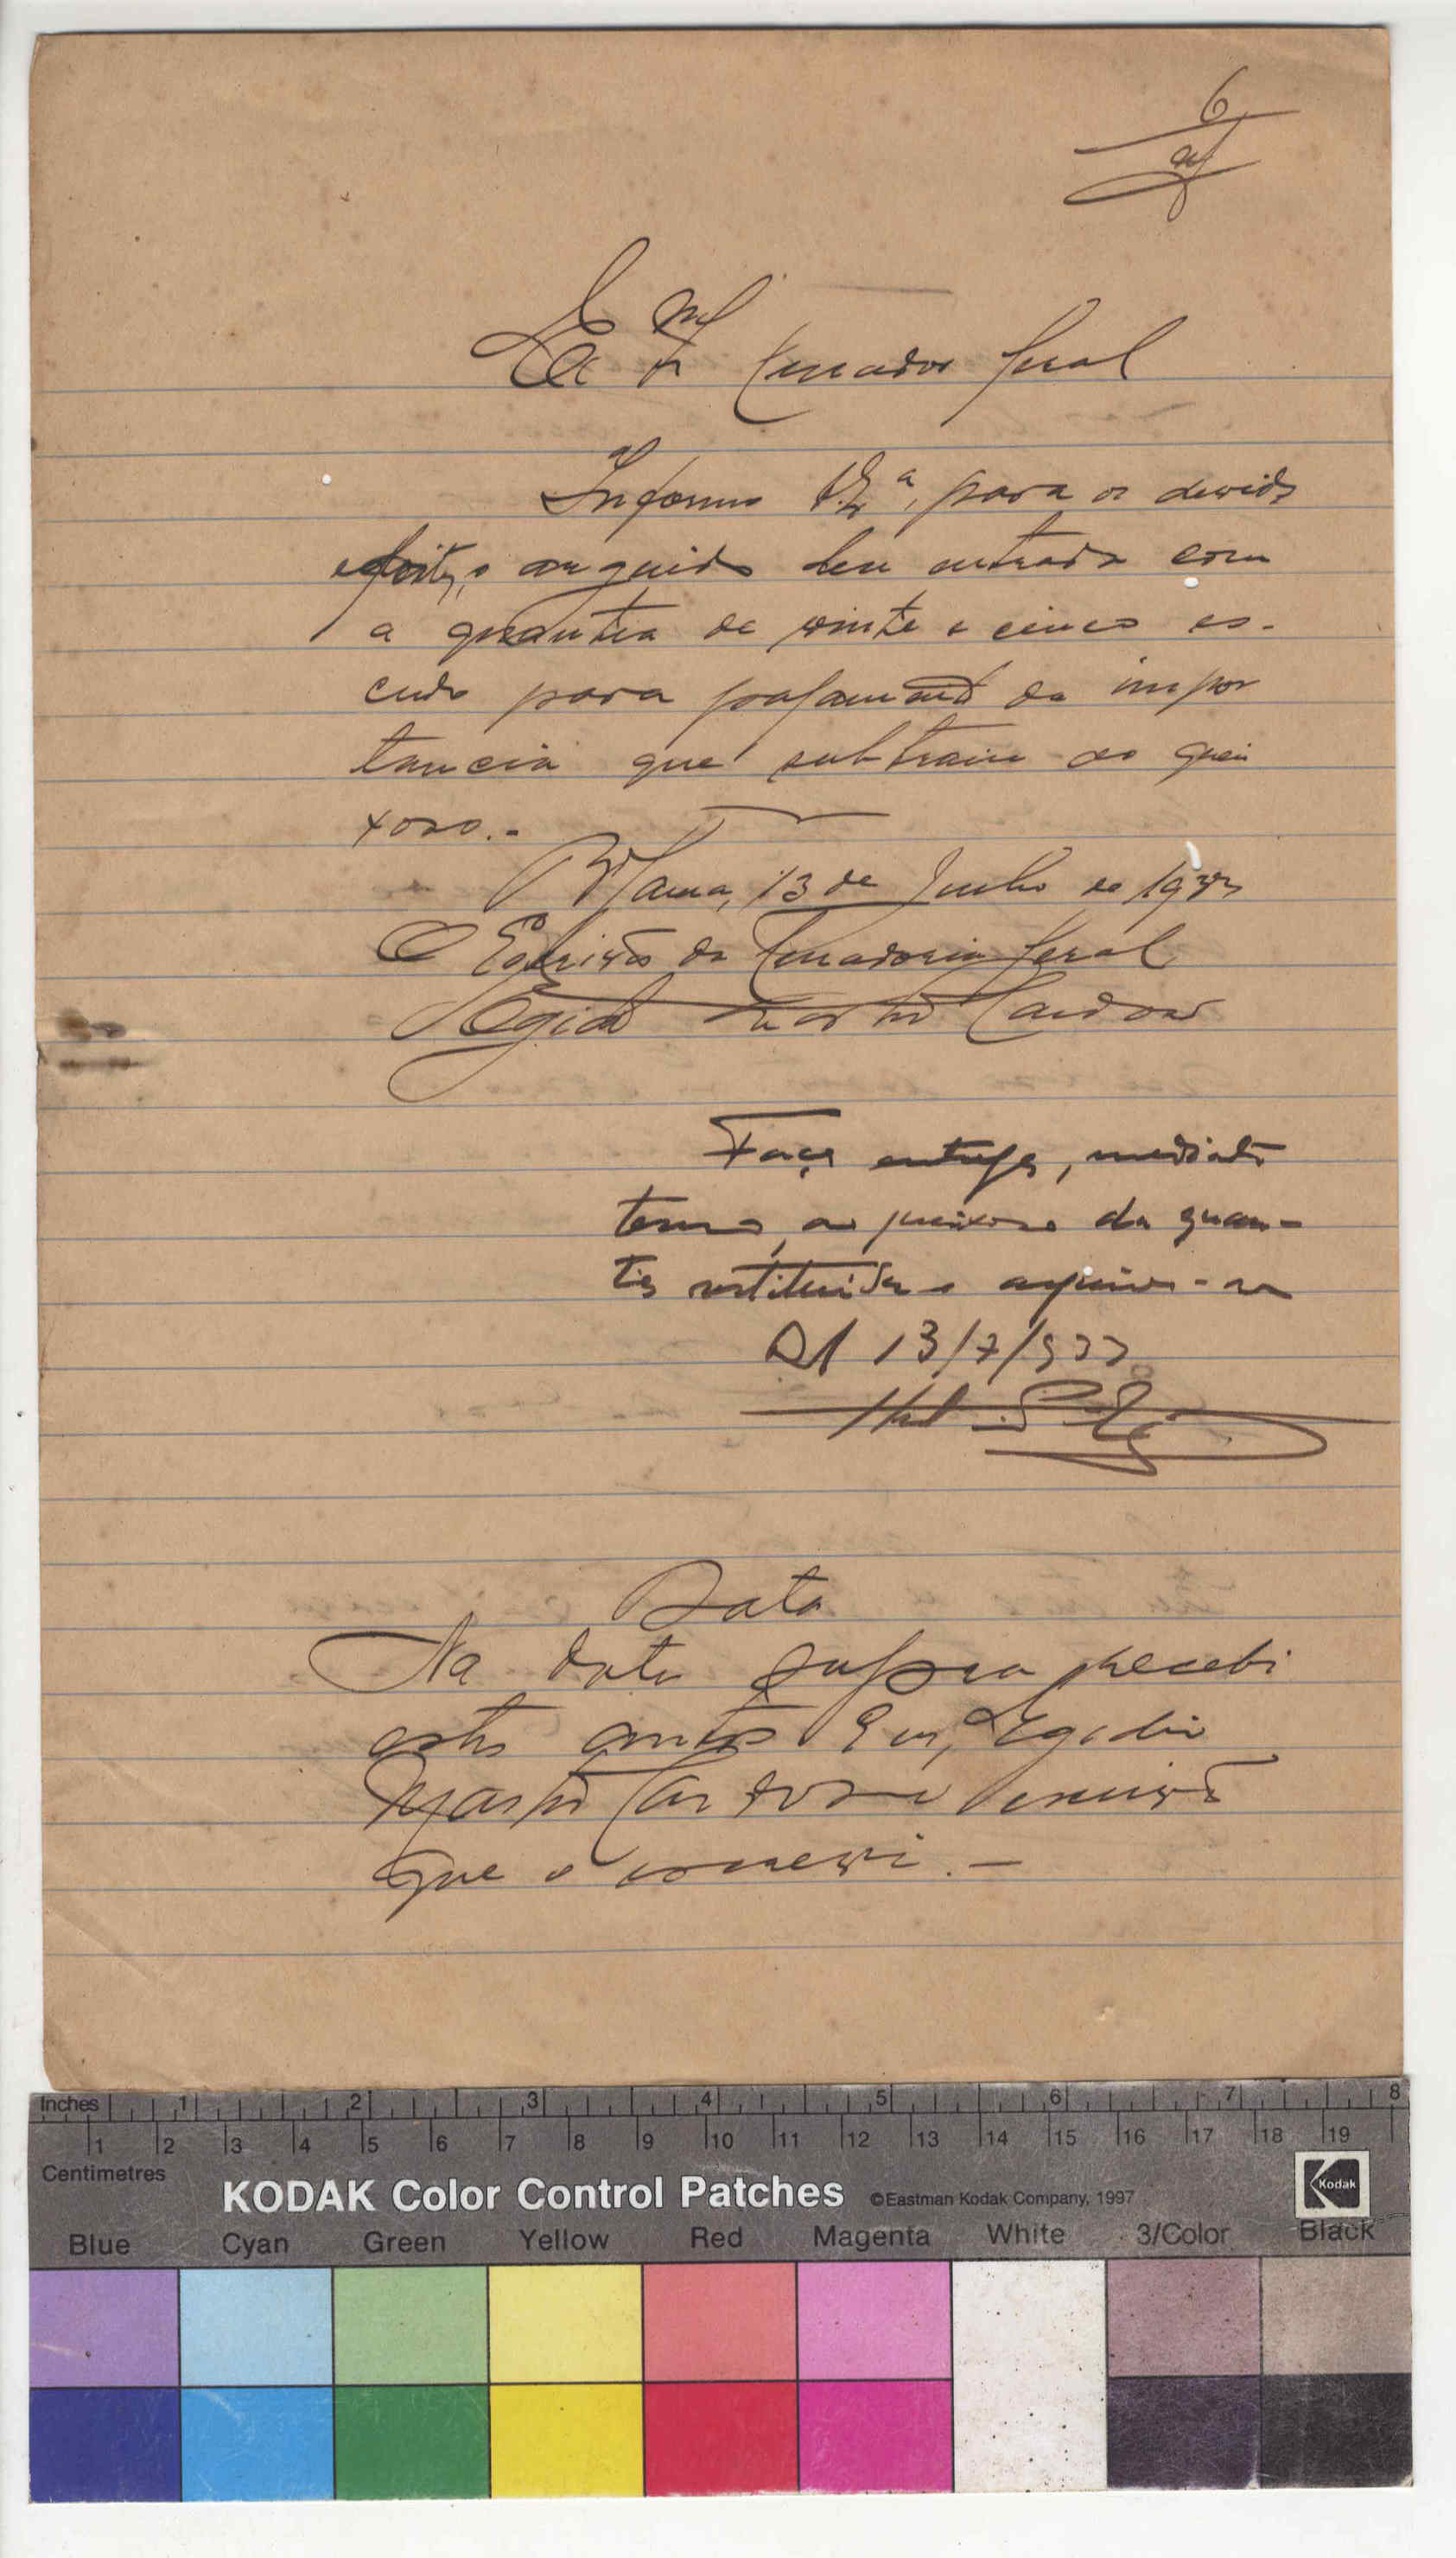 6
Ex.mo Sr. Curador Geral
Informo V. Ex.ª, para os devidos
efeitos, o arguido deu entrada com
a quantia de vinte e cinco es-
cudos para pagamento da impor
tancia que subtraiu ao quei
xoso.-
13 de Julho de 193
O Escrivão da Curadoria Geral
Egidio Cardoso
Faça entrega, mediante
termo, ao queixoso da quan-
tia restituida e arquive-se
13/7/933
Data
Na data supra recebi
estes autos Eu, Egidio
Cardoso escrivão
que o escrevi.-
Inches 1 2 3 4 5 6 7 8
1 2 3 4 5 6 7 8 9 10 11 12 13 14 15 16 17 18 19
Centimetres
KODAK Color Control Patches ©Eastman Kodak Company, 1997 Kodak
Blue Cyan Green Yellow Red Magenta White 3/Color Black